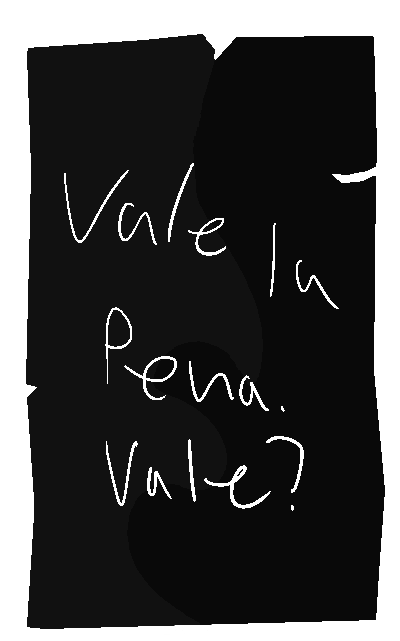 Vale la
Pena.
Vale?